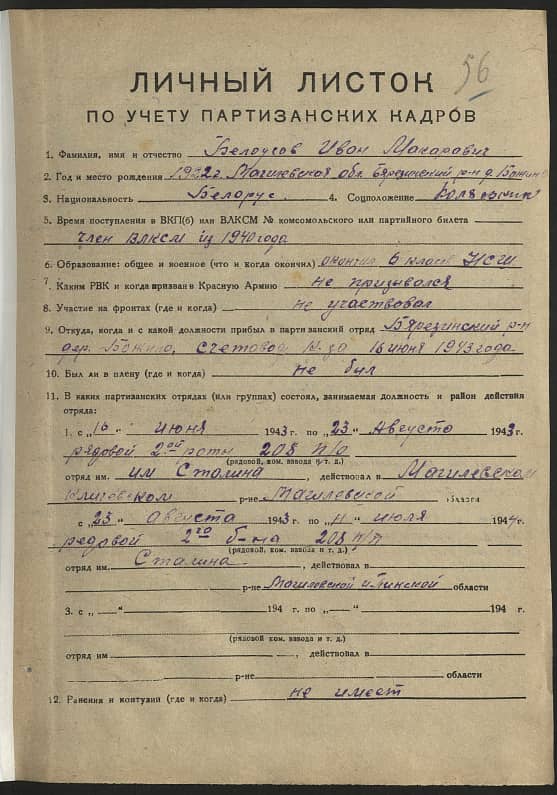 56
ЛИЧНЫЙ ЛИСТОК
ПО УЧЕТУ ПАРТИЗАНСКИХ КАДРОВ
1. Фамилия, имя и отчество Белоусов Иван Макарович
2. Год и место рождения 1922г. Магилевская обл. Бярезинский р-н д. Божино
3. Национальность Белорус. 4. Соцположение Колхозник
5. Время поступления в ВКП(б) или ВЛКСМ № комсомольского или партийного билета
член ВЛКСМ из 1940 года
6. Образование: общее и военное (что и когда окончил) окончил 6 класс НСШ
7. Каким РВК и когда призван в Красную Армию не призывался
8. Участие на фронтах (где и когда) не участвовал
9. Откуда, когда и с какой должности прибыл в партизанский отряд Бярезинский р-н
дер. Божино, счетовод к-за 16 июня 1943 года.
10. Был ли в плену (где и когда) не был
11. В каких партизанских отрядах (или группах) состоял, занимаемая должность и район действия
отряда:
1. с „16" июня 1943 г. по „23" Августа 1943 г.
рядовой 2ой роты 208 п/о
(рядовой, ком. взвода и т. д.)
отряд им. им Сталина, действовал в Магилевской
р-не Магилевской области
с „23" августа 1943 г. по „11" июля 1944 г.
редовой 2го б-на 208 п/п
(рядовой, ком. взвода и т. д.)
отряд им Сталина, действовал в
р-не Магилевской и Пинской области
3. с „—" 194 г. по „—" 194 г.
(рядовой ком. взвода и т. д.)
отряд им, действовал в
р-не области
12. Ранения и контузии (где и когда) не имеет